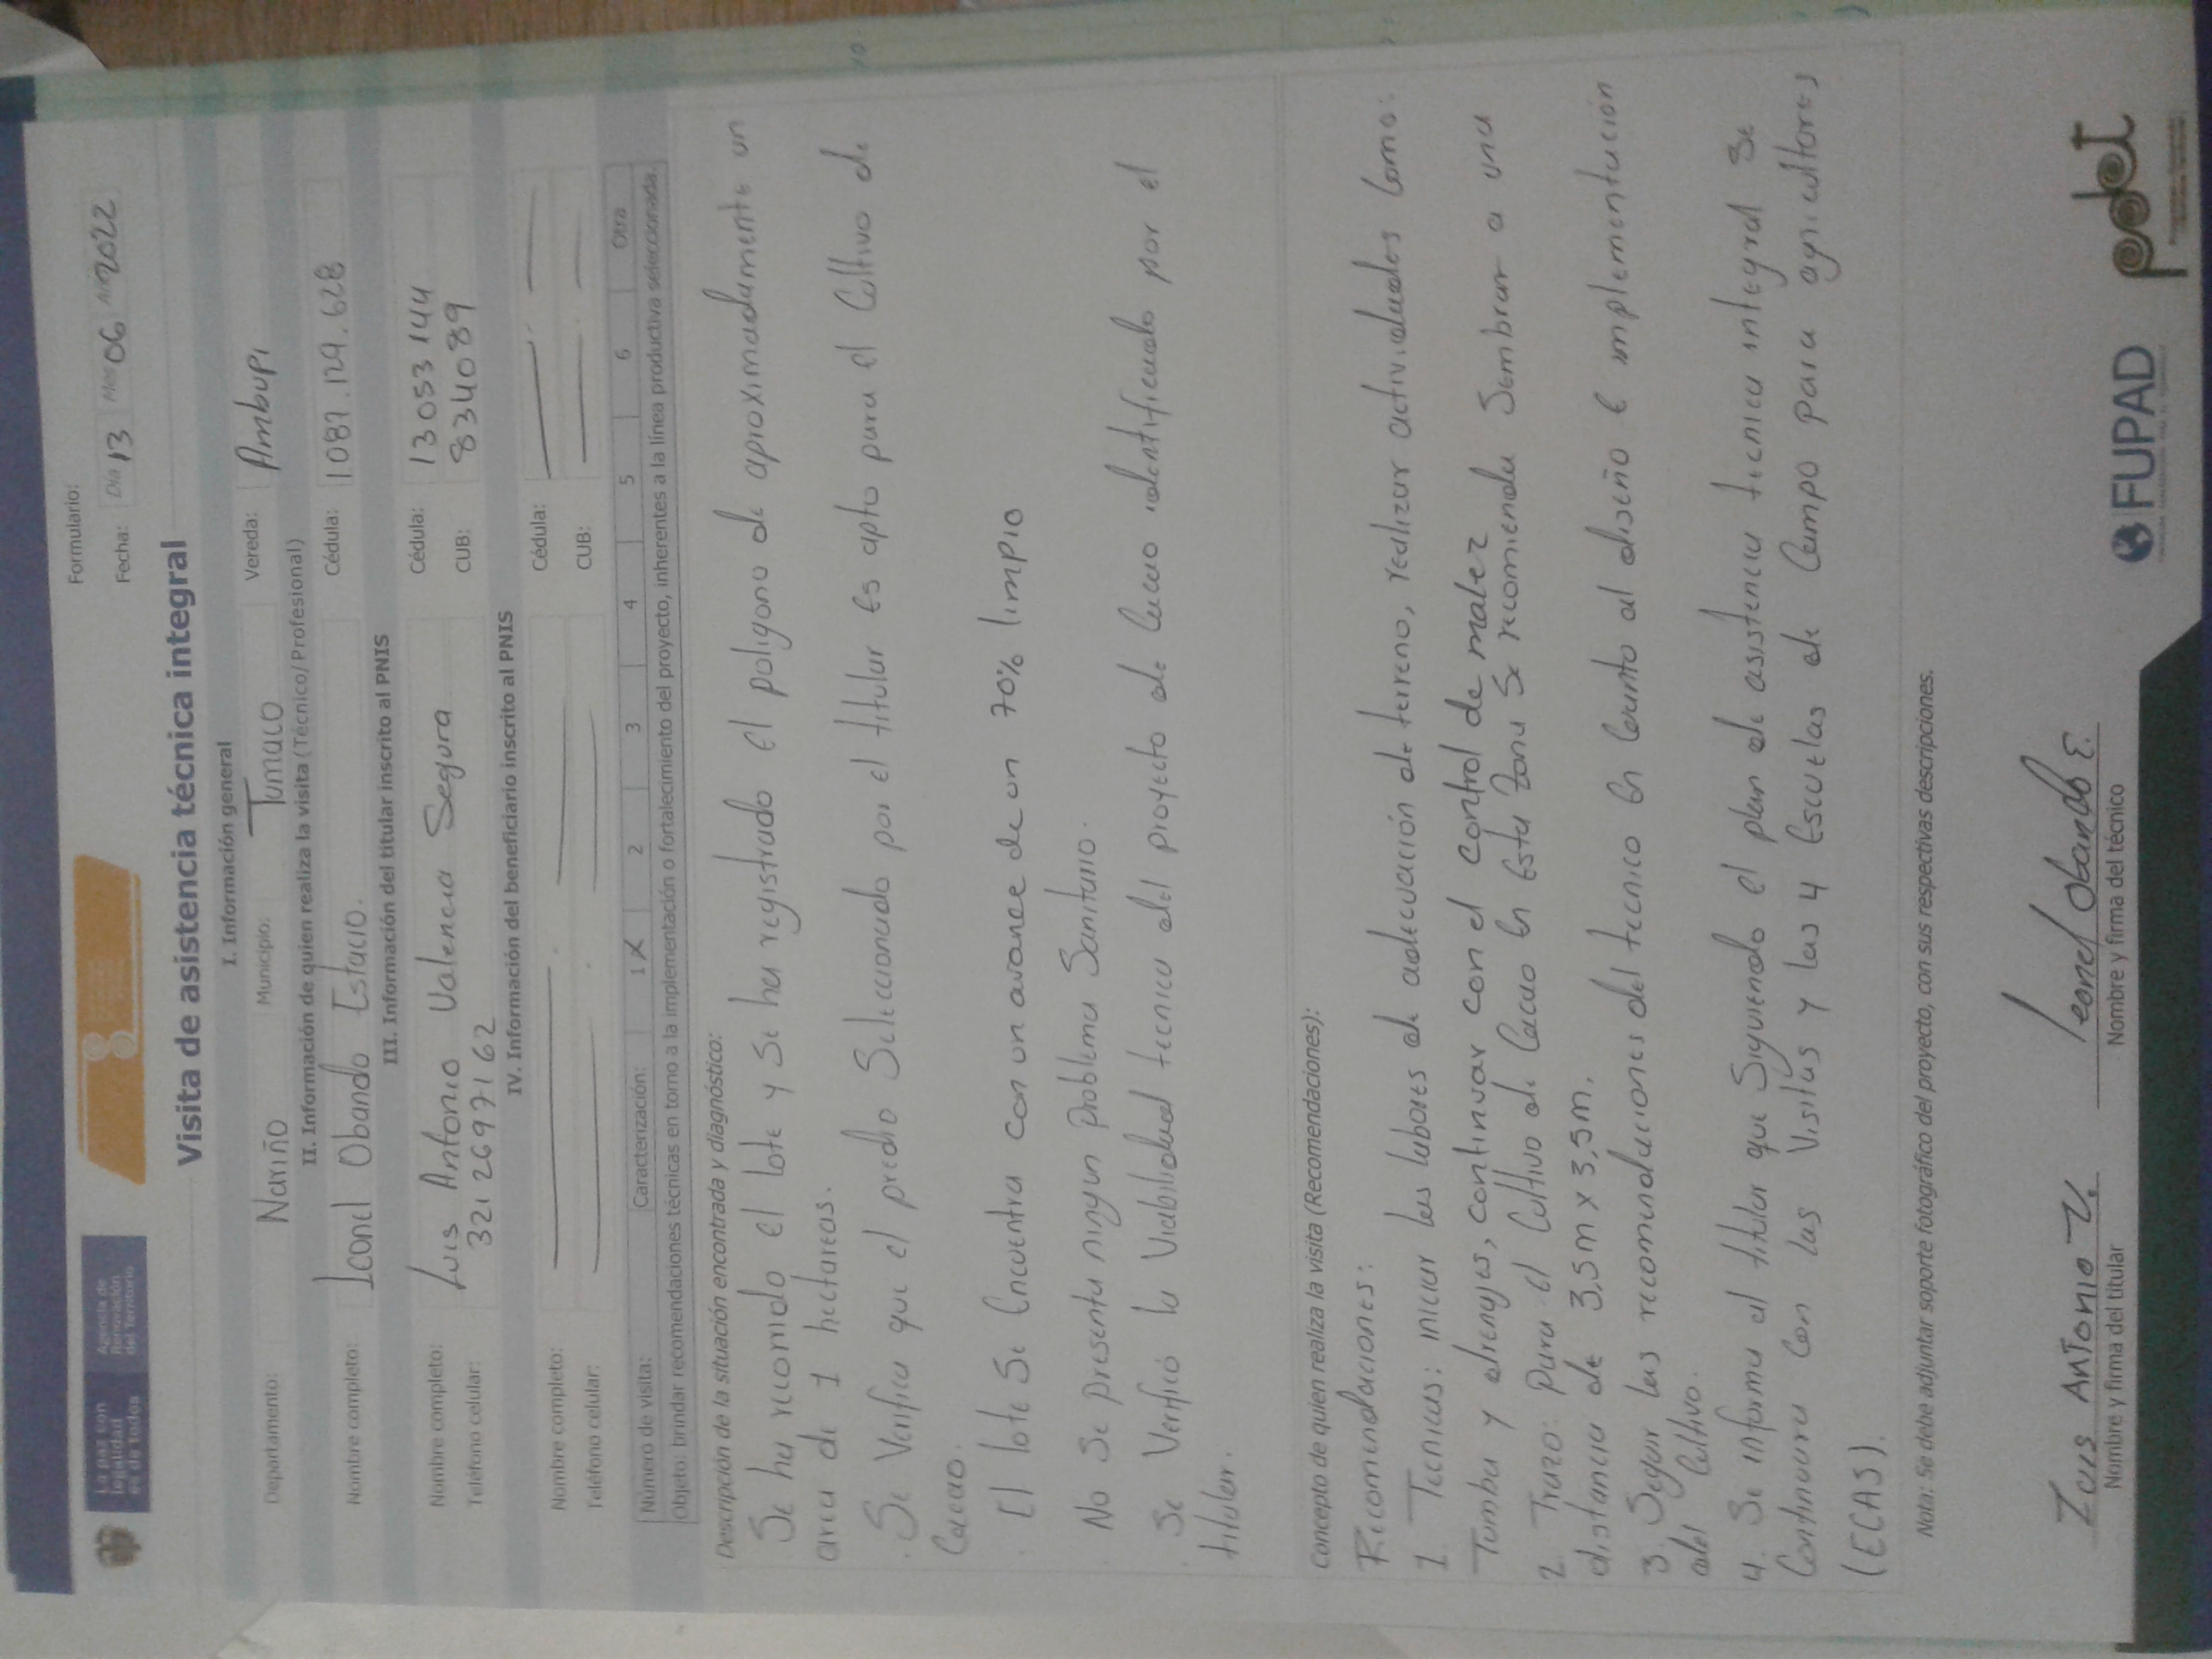 La paz con
legalidad
es de todos
Agencia de
Renovación
del Territorio
Formulario:
Fecha: Día 13 Mes 06 Año 2022
Visita de asistencia técnica integral
I. Información general
Departamento: Nariño Municipio: Tumaco Vereda: Ambupi
II. Información de quien realiza la visita (Técnico/Profesional)
Nombre completo: Leonel Obando Estacio. Cédula: 1087.129.628
III. Información del titular inscrito al PNIS
Nombre completo: Luis Antonio Valencia Segura Cédula: 13053144
Teléfono celular: 3212697162 CUB: 8334089
IV. Información del beneficiario inscrito al PNIS
Nombre completo: Cédula:
Teléfono celular: CUB:
Número de visita: Caracterización: 1 X 2 3 4 5 6 Otra
Objeto: brindar recomendaciones técnicas en torno a la implementación o fortalecimiento del proyecto, inherentes a la línea productiva seleccionada.
Descripción de la situación encontrada y diagnóstico:
. Se ha recorrido el lote y se ha registrado el poligono de aproximadamente un
area de 1 hectareas.
. Se Verifica que el predio Seleccionado por el titular es apto para el Cultivo de
Cacao.
. El lote Se Encuentra con un avance de un 70% limpio
. No Se presenta ningun problema Sanitario.
. Se Verificó la Viabilidad tecnica del proyecto de Cacao identificado por el
titular.
Concepto de quien realiza la visita (Recomendaciones):
Recomendaciones:
1. Tecnicas: iniciar las labores de adecuación de terreno, realizar actividades como:
Tumba y drenajes, continuar con el control de malez
2. Trazo: Para el Cultivo de Cacao en esta zona Se recomienda Sembrar a una
distancia de 3,5m x 3,5m.
3. Seguir las recomendaciones del tecnico en cuanto al diseño e implementación
del Cultivo.
4. Se informa al titular que Siguiendo el plan de asistencia tecnica integral Se
Continuara Con las Visitas y las 4 Escuelas de Campo para agricultores
(ECAS).
Nota: Se debe adjuntar soporte fotográfico del proyecto, con sus respectivas descripciones.
Luis Antonio V.
Nombre y firma del titular
Leonel Obando E.
Nombre y firma del técnico
FUPAD
pdet